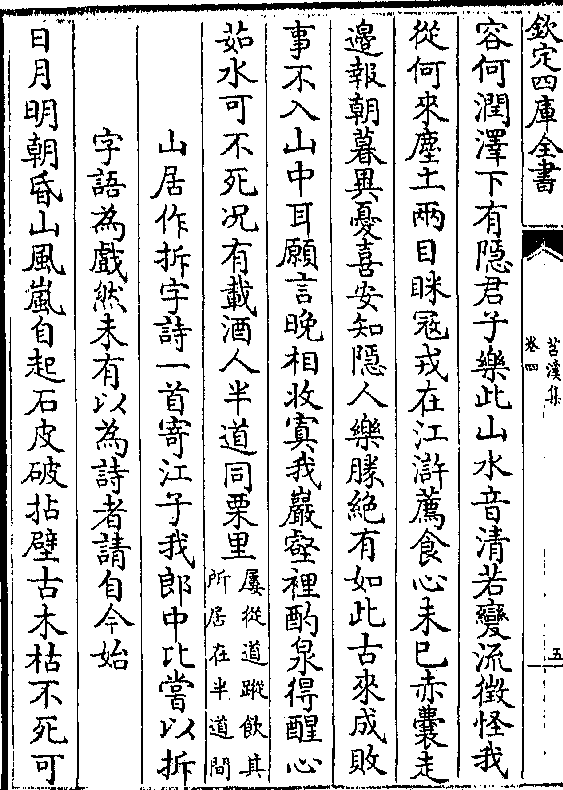 欽定四庫全書
苕溪集
卷四
五
容何潤澤下有隱君子樂此山水音清若變流徵怪我
從何來塵土兩目眯冦戎在江滸薦食心未已赤囊走
邊報朝暮異憂喜安知隱人樂勝絶有如此古來成敗
事不入山中耳願言晚相收寘我巖壑裡酌泉得醒心
茹水可不死况有載酒人半道同栗里
屢從道蹤飲其
所居在半道間
山居作拆字詩一首寄江子我郎中比嘗以拆
字語為戲然未有以為詩者請自今始
日月明朝昏山風嵐自起石皮破拈壁古木枯不死可